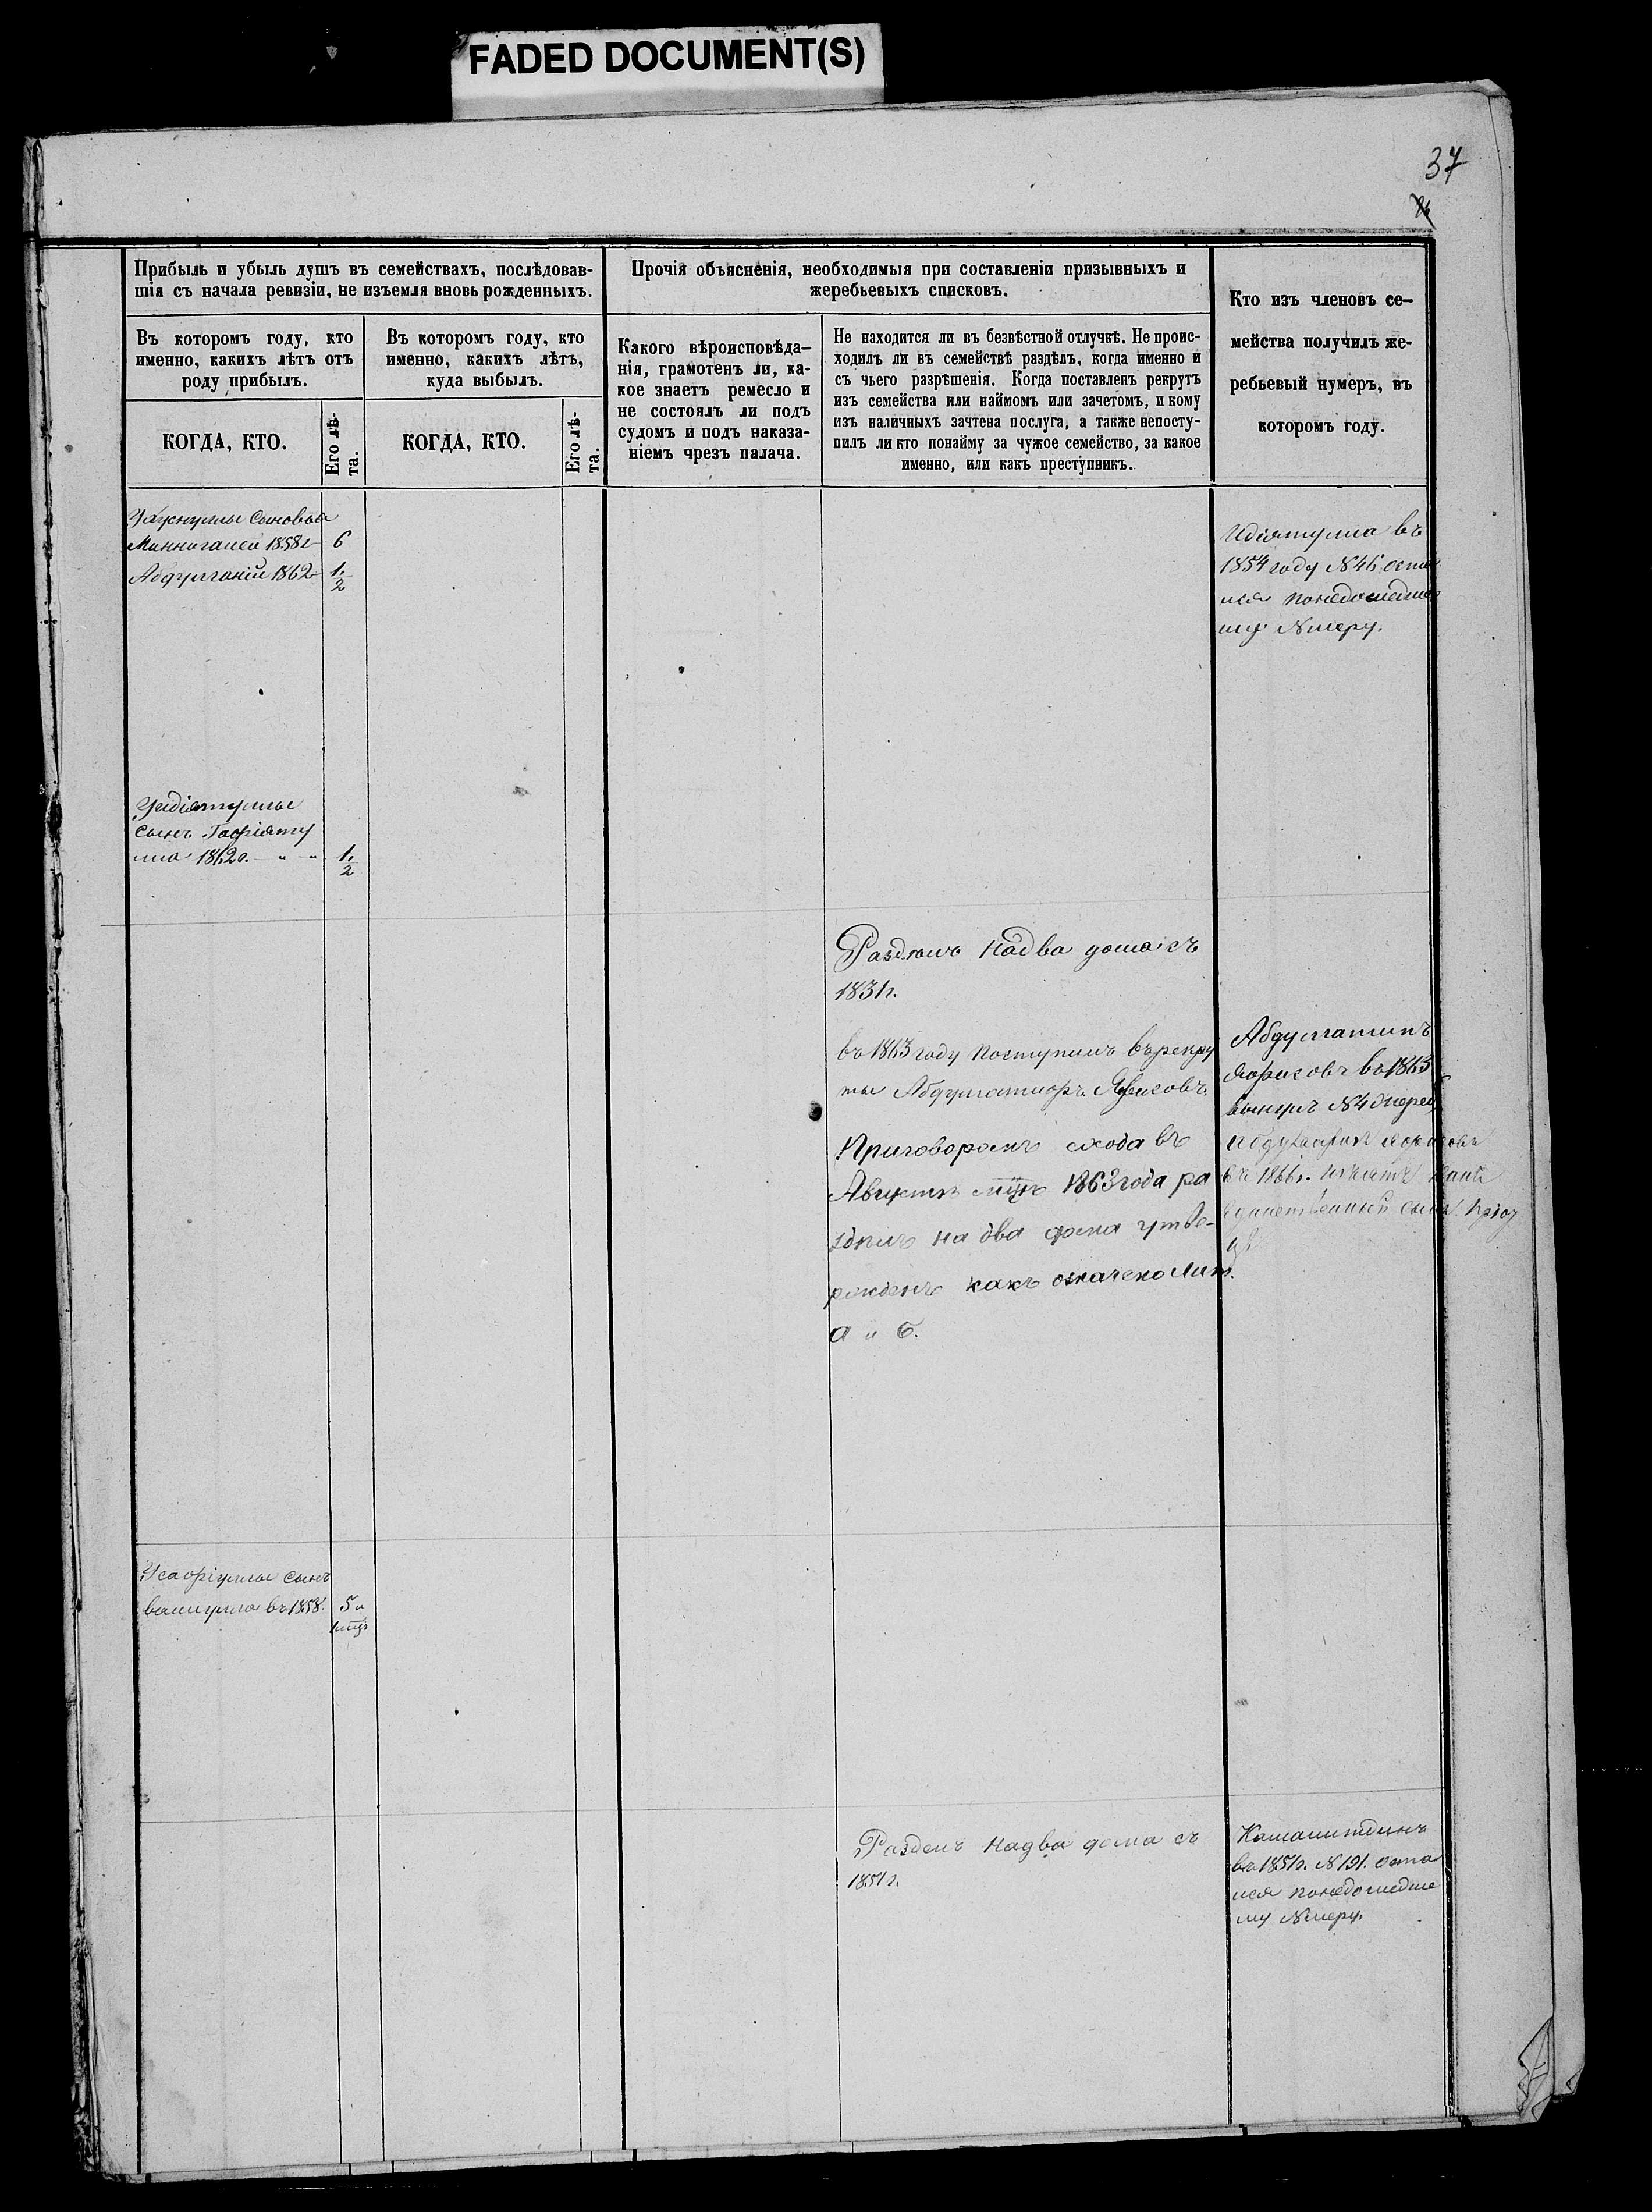 FADED DOCUMENT(S)
37
Прибыль и убыль душъ въ семействахъ, послѣдовав-
шія съ начала ревизіи, не изъемля вновь рожденныхъ.
Прочія объясненія, необходимыя при составленіи призывныхъ и
жеребьевыхъ списковъ.
Кто изъ членовъ се-
мейства получилъ же-
ребьевый нумеръ, въ
которомъ году.
Въ которомъ году, кто
именно, какихъ лѣтъ отъ
роду прибылъ.
Въ которомъ году, кто
именно, какихъ лѣтъ,
куда выбылъ.
Какого вѣроисповѣда-
нія, грамотенъ ли, ка-
кое знаетъ ремесло и
не состоялъ ли подъ
судомъ и подъ наказа-
ніемъ чрезъ палача.
Не находится ли въ безвѣстной отлучкѣ. Не проис-
ходилъ ли въ семействѣ раздѣлъ, когда именно и
съ чьего разрѣшенія. Когда поставленъ рекрутъ
изъ семейства или наймомъ или зачетомъ, и кому
изъ наличныхъ зачтена послуга, а также непосту-
пилъ ли кто понайму за чужое семейство, за какое
именно, или какъ преступникъ.
КОГДА, КТО.
Его лѣ-
та.
КОГДА, КТО.
Его лѣ-
та.
сыновья
1858 6
Абдулганiй 1862 1/2
Идіятулла въ
1854 году №46 оста
лся понедошедше
му Nмеру.
сынъ
лла 1862г. 1/2
Раздѣлъ на два дома съ
1831г.
въ 1863 году поступилъ въ рекру
ты
въ 1863
вынулъ №4
Приговоромъ схода въ
Августѣ мцѣ 1863 года ра
здѣлъ на два дома утве-
ржденъ какъ означено Лит.
а и б.
въ 1866г.
единственный сынъ
сынъ
въ 1858. 5 и
Раздѣлъ на два дома съ
1851г.
Камалитдинъ
въ 1851г. №191. оста
лся понедошедше
му Nмеру.